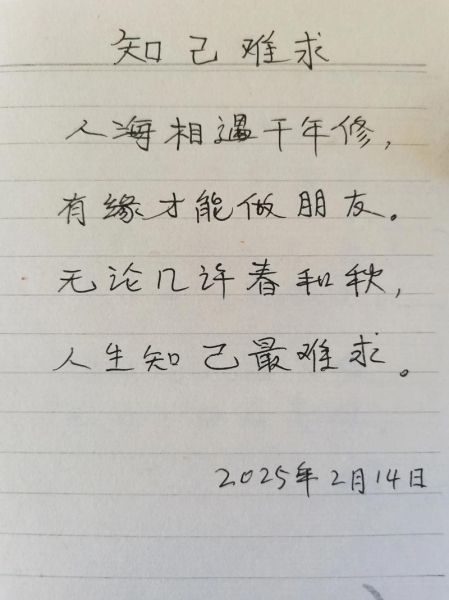 知己难求
人海相遇千年修，
有缘才能做朋友。
无论几许春和秋，
人生知己最难求。
2025年2月14日